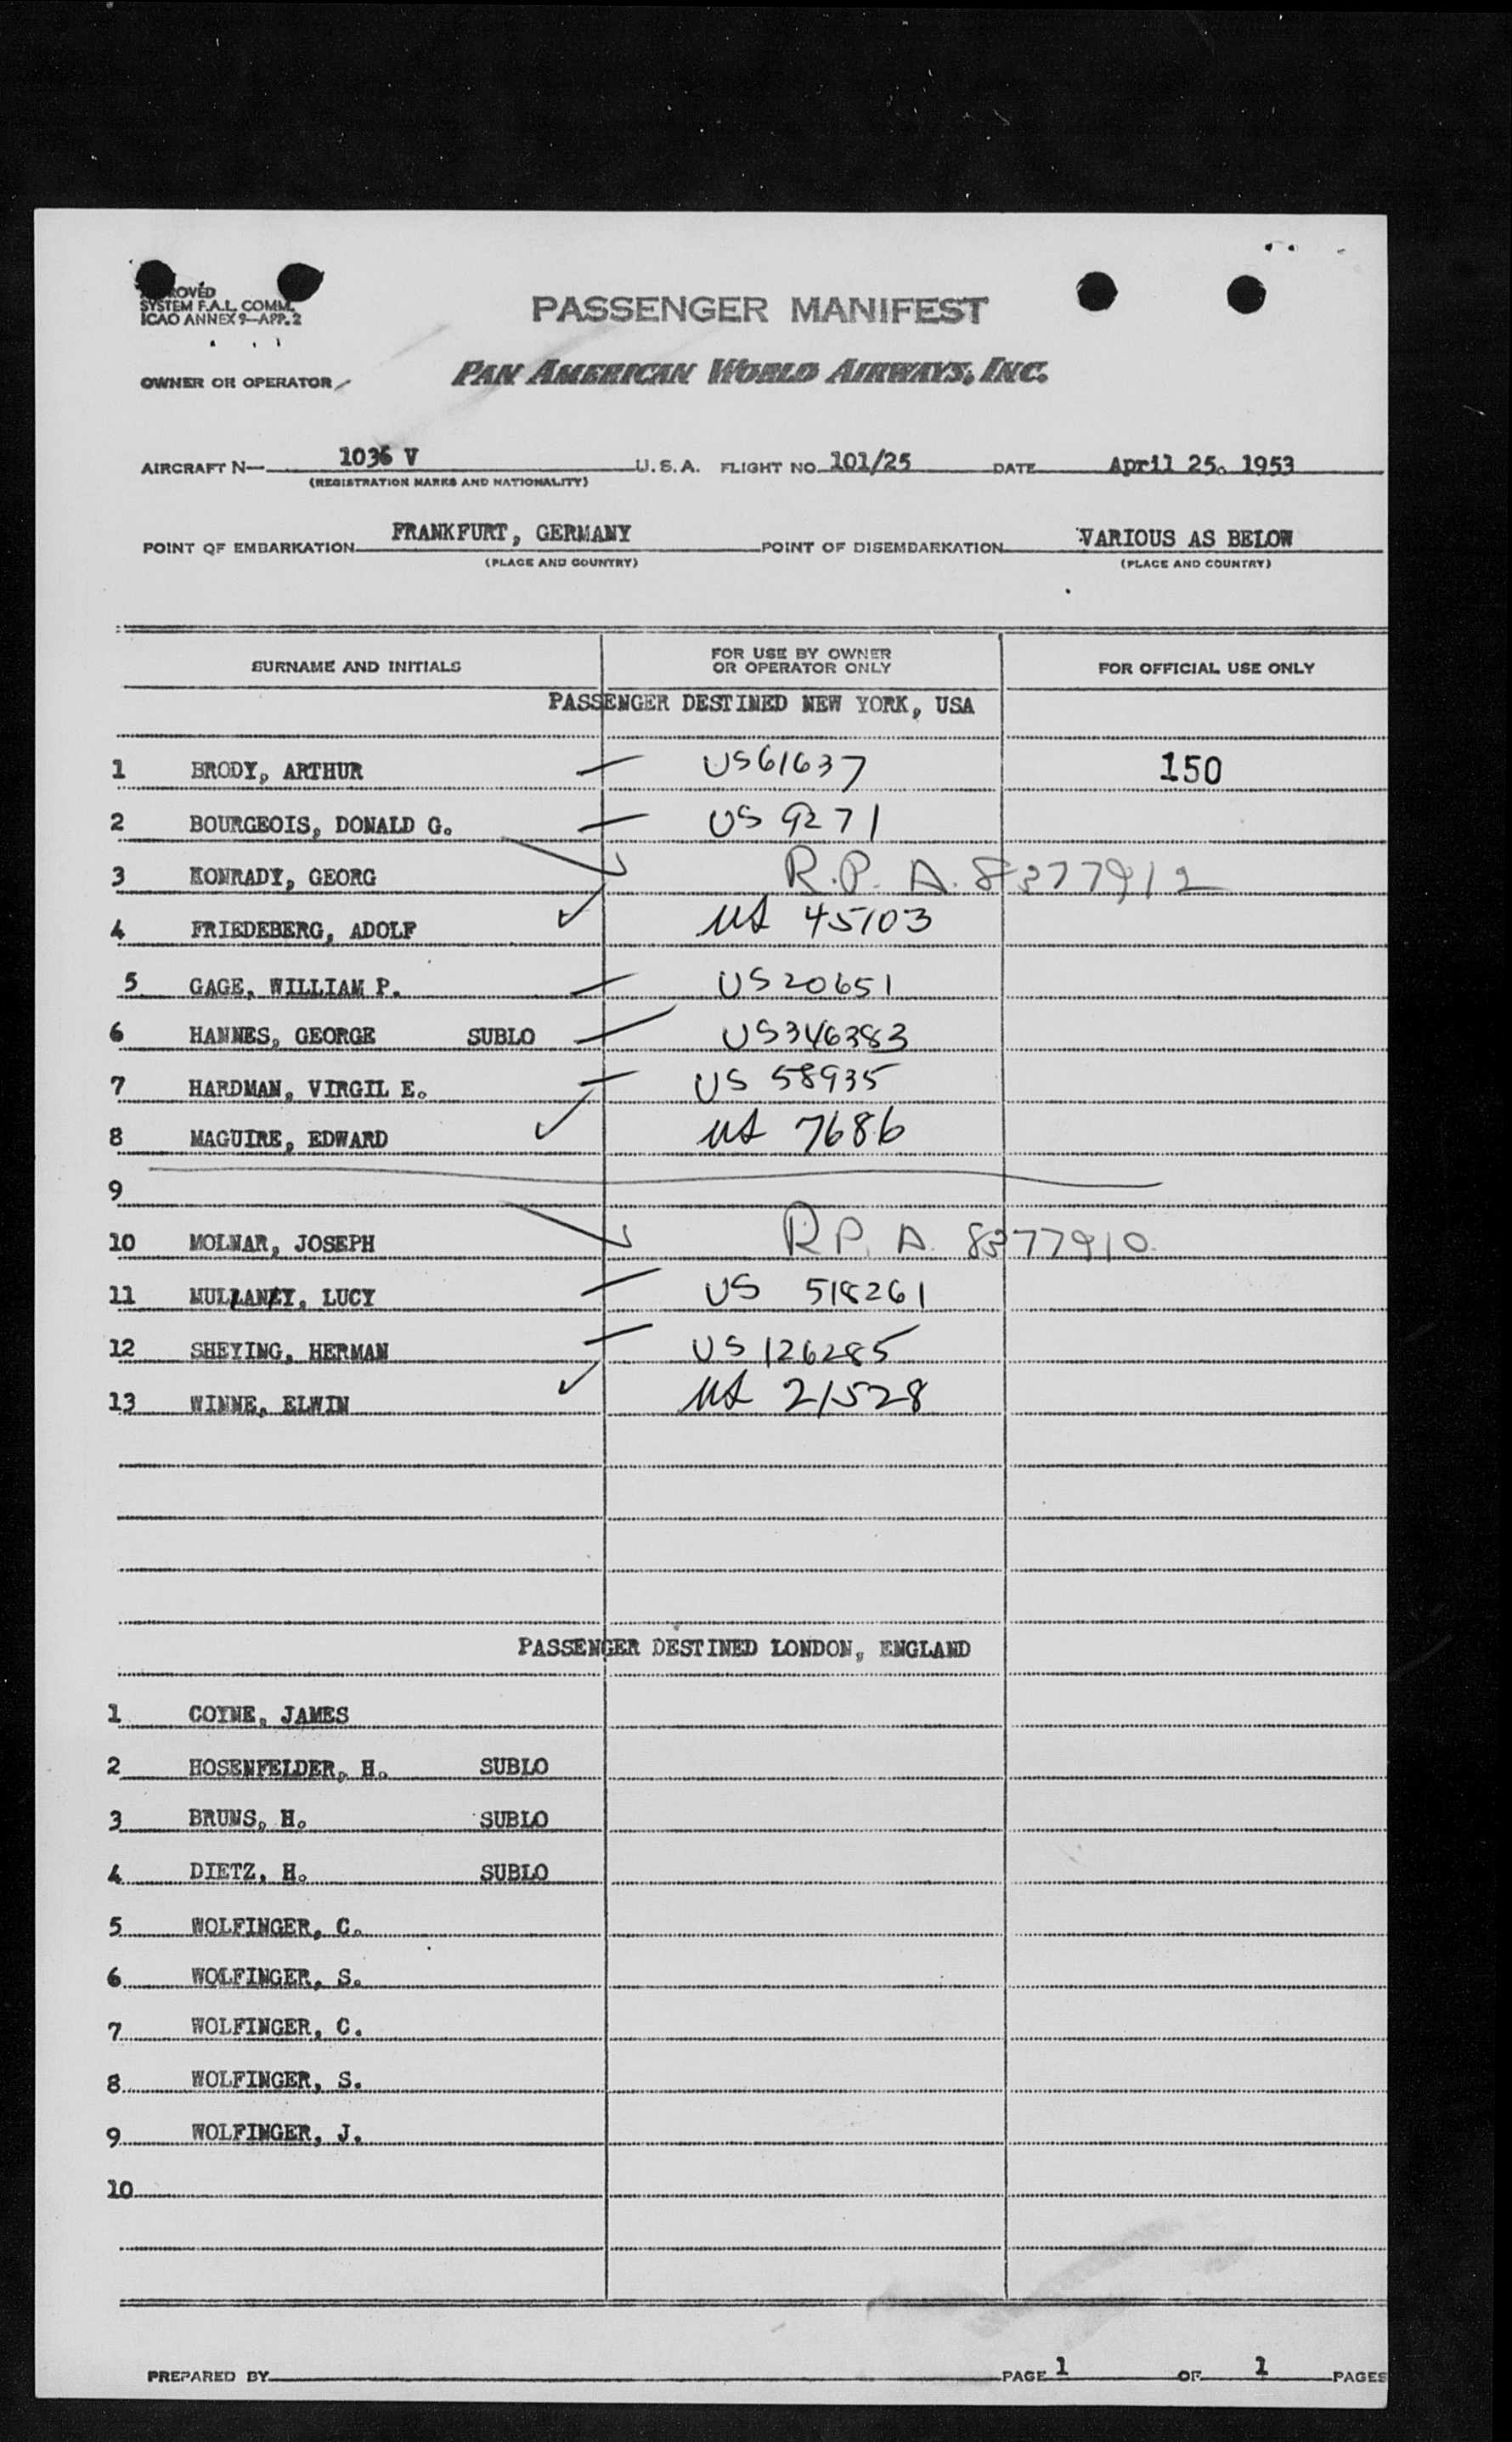 PROVED
SYSTEM F.A.L. COMM.
ICAO ANNEX 9—APP. 2
PASSENGER MANIFEST
OWNER OR OPERATOR PAN AMERICAN WORLD AIRWAYS, INC.
AIRCRAFT N— 1036 V U.S.A. FLIGHT NO. 101/25 DATE April 25. 1953
(REGISTRATION MARKS AND NATIONALITY)
POINT OF EMBARKATION FRANKFURT, GERMANY POINT OF DISEMBARKATION VARIOUS AS BELOW
(PLACE AND COUNTRY) (PLACE AND COUNTRY)
SURNAME AND INITIALS FOR USE BY OWNER OR OPERATOR ONLY FOR OFFICIAL USE ONLY
PASSENGER DESTINED NEW YORK, USA
1 BRODY, ARTHUR US61637 150
2 BOURGEOIS, DONALD G. US 9271
3 KONRADY, GEORG R.P. A. 8377912
4 FRIEDEBERG, ADOLF US 45103
5 GAGE, WILLIAM P. US20651
6 HANNES, GEORGE SUBLO US346383
7 HARDMAN, VIRGIL E. US 58935
8 MAGUIRE, EDWARD US 7686
9
10 MOLNAR, JOSEPH R.P. A. 8377910
11 MULLANEY, LUCY US 518261
12 SHEYING, HERMAN US 126285
13 WINNE, ELWIN US 21528
PASSENGER DESTINED LONDON, ENGLAND
1 COYNE, JAMES
2 HOSENFELDER, H. SUBLO
3 BRUNS, H. SUBLO
4 DIETZ, H. SUBLO
5 WOLFINGER, C.
6 WOLFINGER, S.
7 WOLFINGER, C.
8 WOLFINGER, S.
9 WOLFINGER, J.
10
PREPARED BY PAGE 1 OF 1 PAGES